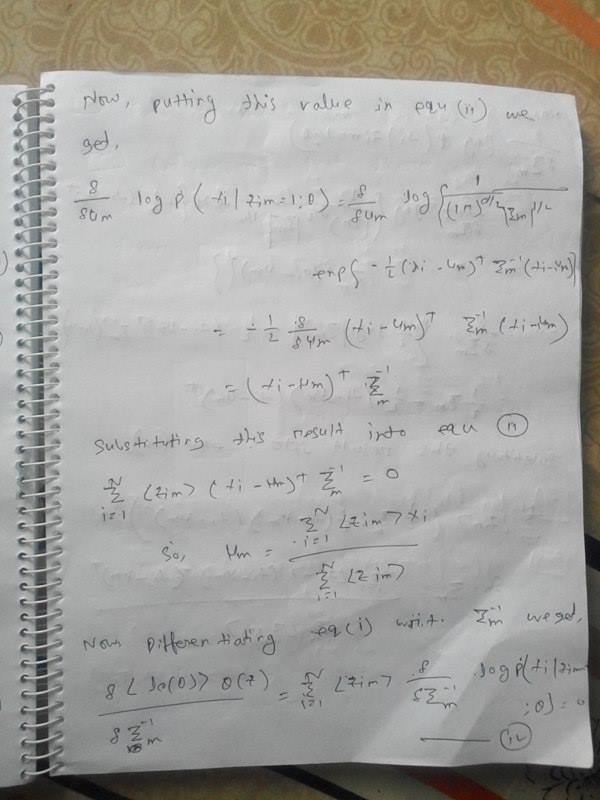 Now, putting this value in equ (ii) we
get,
δ/δμm log P (xi | zim = 1; θ) = δ/δμm log { 1/((2π)^d/2 |Σm|^1/2
exp{ -1/2 (xi - μm)^T Σm^-1 (xi - μm) }
= -1/2 δ/δμm (xi - μm)^T Σm^-1 (xi - μm)
= (xi - μm)^T Σm^-1
Substituting this result into equ (ii)
Σ_i=1^N <zim> (xi - μm)^T Σm^-1 = 0
So, μm = Σ_i=1^N <zim> xi / Σ_i=1^N <zim>
Now Differentiating eq(i) w.r.t. Σm^-1 we get,
δ < lc(θ) > Q(z) / δΣm^-1 = Σ_i=1^N <zim> δ/δΣm^-1 log P(xi | zim
; θ) = 0
(iv)